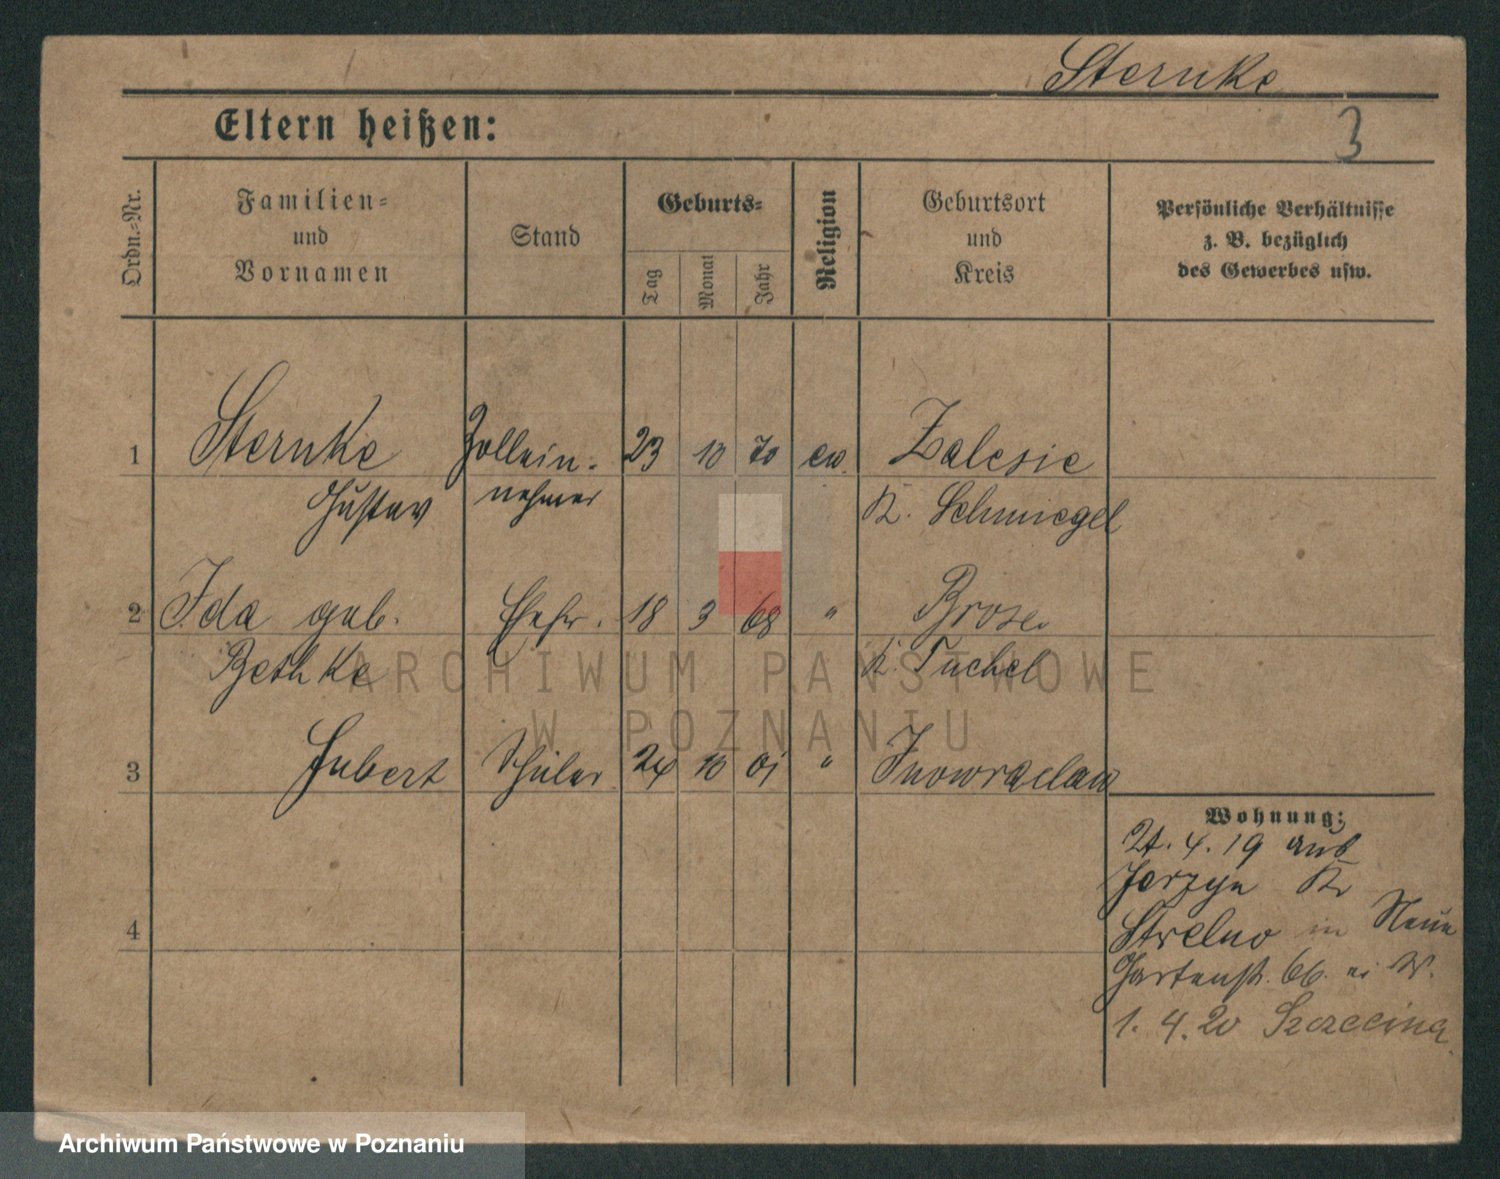 Sternke
Eltern heißen:
3
Ordn.-Nr.
Familien-
und
Vornamen
Stand
Geburts-
Tag
Monat
Jahr
Religion
Geburtsort
und
Kreis
Persönliche Verhältnisse
z. B. bezüglich
des Gewerbes usw.
1 Sternke Zollein- 23 10 70 ev. Zalesie
Gustav nehmer K. Schmiegel
2 Ida geb. Ehefr. 18 3 68 " Brose
Bethke K. Tuchel
3 Hubert Schüler 24 10 01 " Inowraclaw
4
Wohnung:
4. 19 aus
Kr
Strelno in Neue
Gartenstr. 66.
1. 4. 20 Szczecina
ARCHIWUM PAŃSTWOWE
W POZNANIU
Archiwum Państwowe w Poznaniu